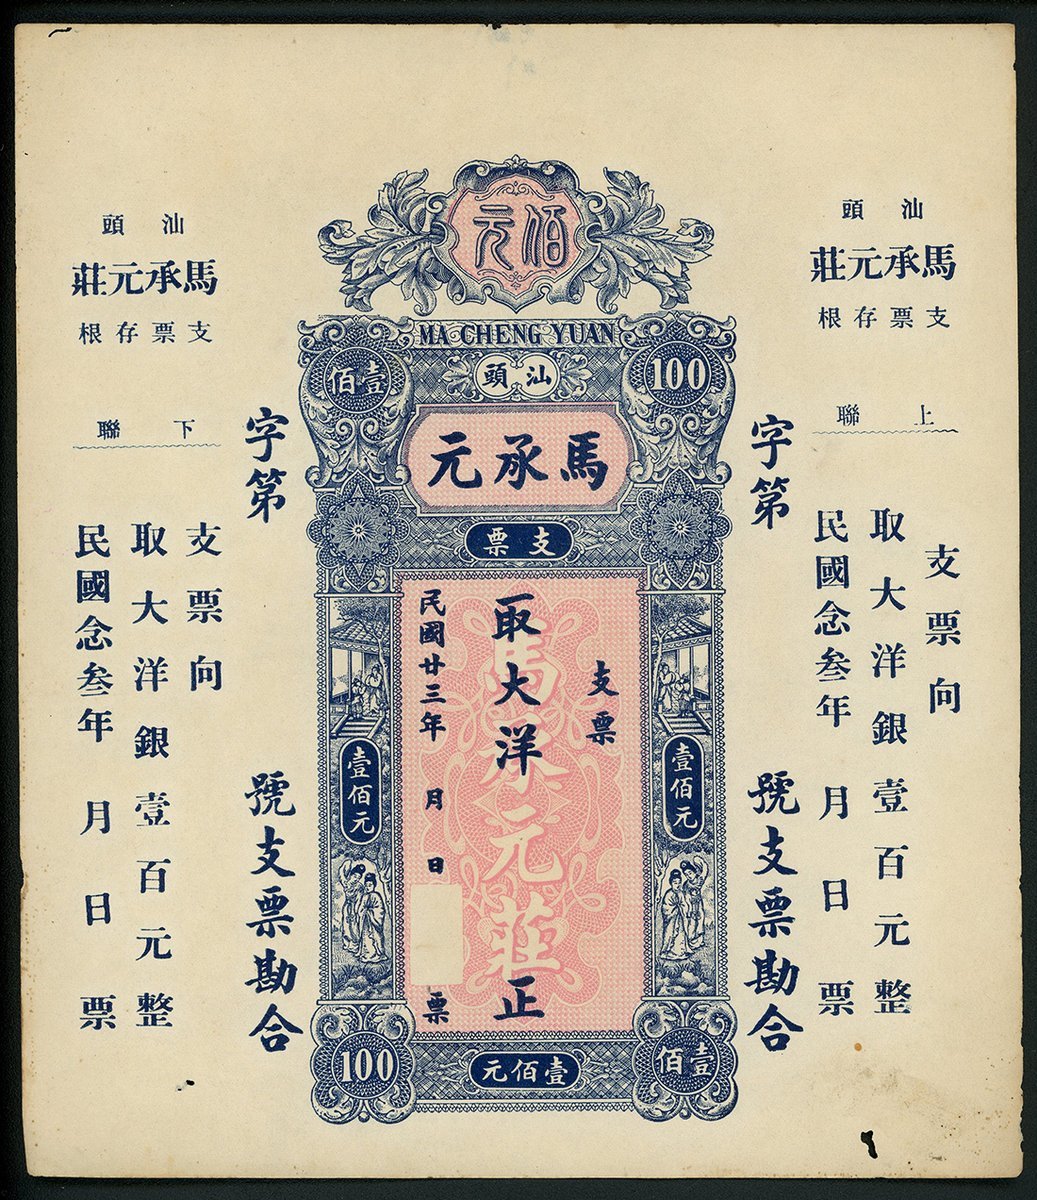 佰元
MA CHENG YUAN
壹佰
100
汕頭
馬承元
支票
支票
取大洋
正
民國廿三年 月 日
票
馬承元莊
壹佰元
壹佰元
100
壹佰元
壹佰
汕頭
馬承元莊
支票存根
上聯
支票向
取大洋銀壹百元整
民國念叁年 月 日 票
字第 號支票勘合
汕頭
馬承元莊
支票存根
下聯
支票向
取大洋銀壹百元整
民國念叁年 月 日 票
字第 號支票勘合